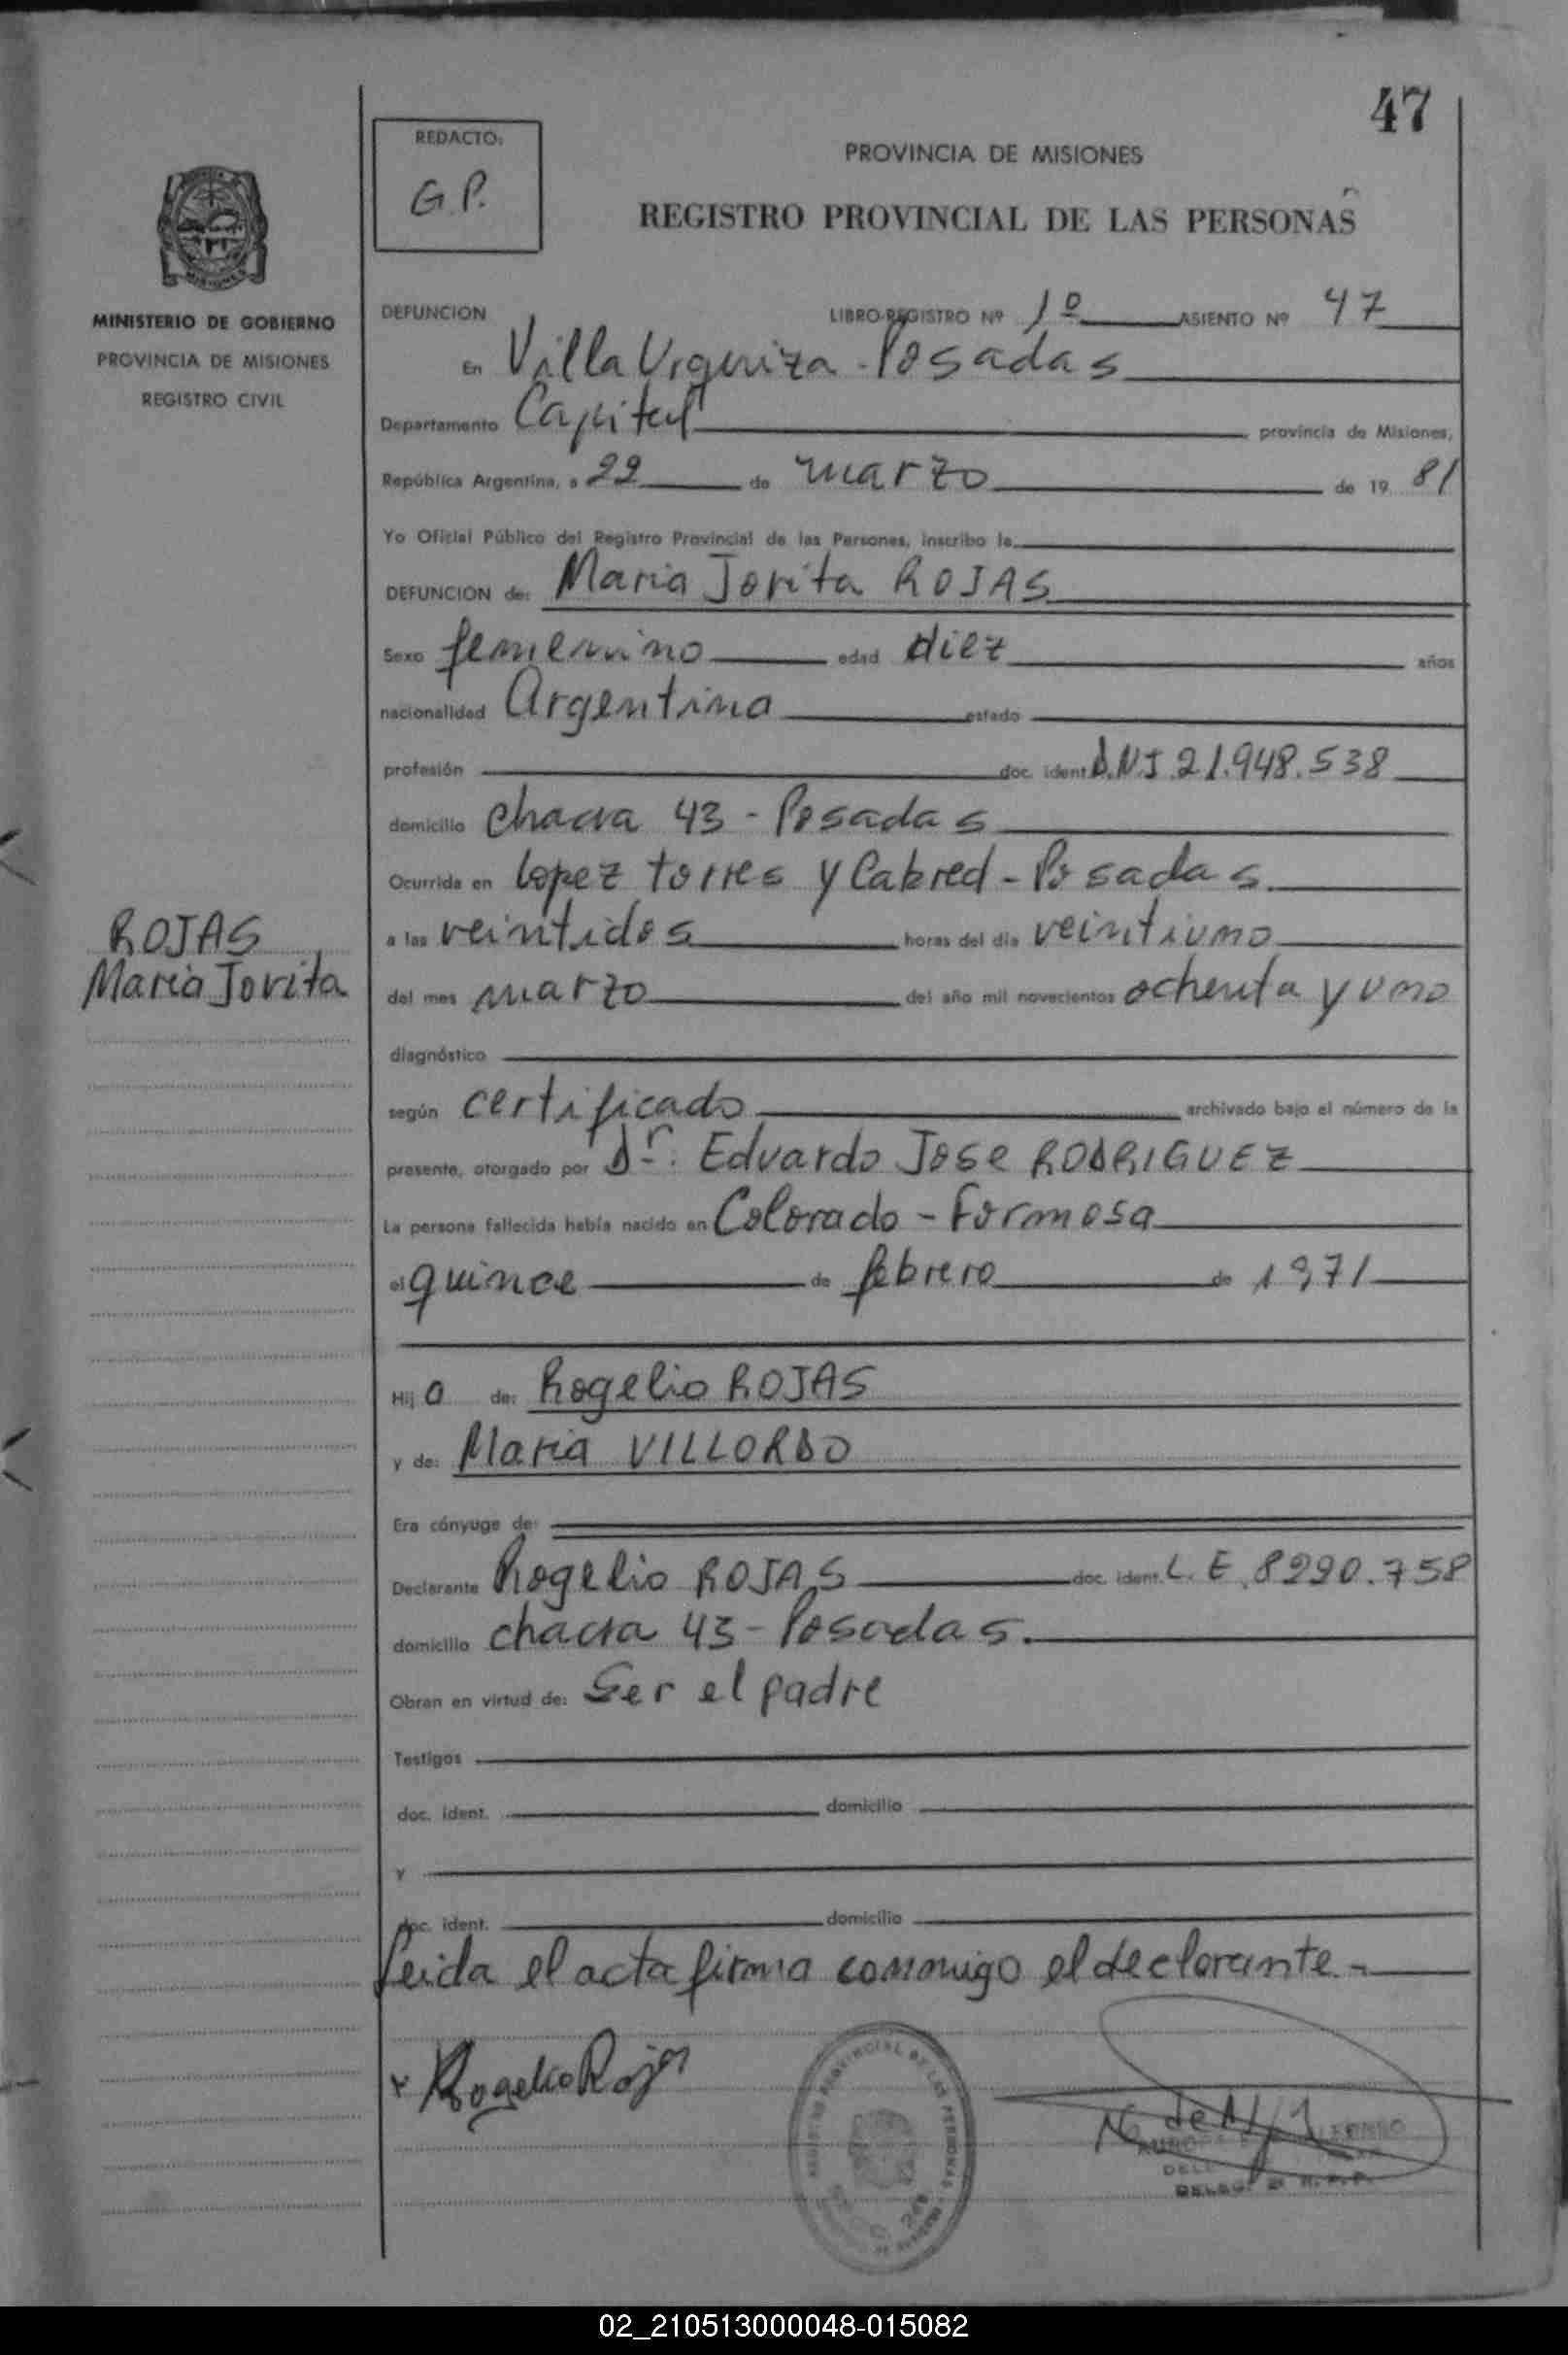 47
REDACTO:
G.P.
PROVINCIA DE MISIONES
REGISTRO PROVINCIAL DE LAS PERSONAS
MISIONES
MINISTERIO DE GOBIERNO
PROVINCIA DE MISIONES
REGISTRO CIVIL
DEFUNCION LIBRO-REGISTRO Nº 1º ASIENTO Nº 47
En Villa Urquiza - Posadas
Departamento Capital provincia de Misiones,
República Argentina, a 22 de marzo de 19 81
Yo Oficial Público del Registro Provincial de las Personas, inscribo la
DEFUNCION de: Maria Jovita ROJAS
Sexo femenino edad diez años
nacionalidad Argentina estado
profesión doc. ident. D.N.I 21.948.538
domicilio chacra 43 - Posadas
Ocurrida en Lopez torres y Cabred - Posadas
a las veintidos horas del día veintiuno
ROJAS
Maria Jovita
del mes marzo del año mil novecientos ochenta y uno
diagnóstico
según certificado archivado bajo el número de la
presente, otorgado por Dr. Eduardo Jose RODRIGUEZ
La persona fallecida había nacido en Colorado - Formosa
el quince de febrero de 1971
Hij a de: Rogelio ROJAS
y de: Maria VILLORDO
Era cónyuge de:
Declarante Rogelio ROJAS doc. ident. L.E. 8290.758
domicilio chacra 43 - Posadas.
Obran en virtud de: Ser el padre
Testigos
doc. ident. domicilio
y
doc. ident. domicilio
Leida el acta firma conmigo el declarante.-
Rogelio Rojas
REGISTRO PROVINCIAL DE LAS PERSONAS
02_210513000048-015082